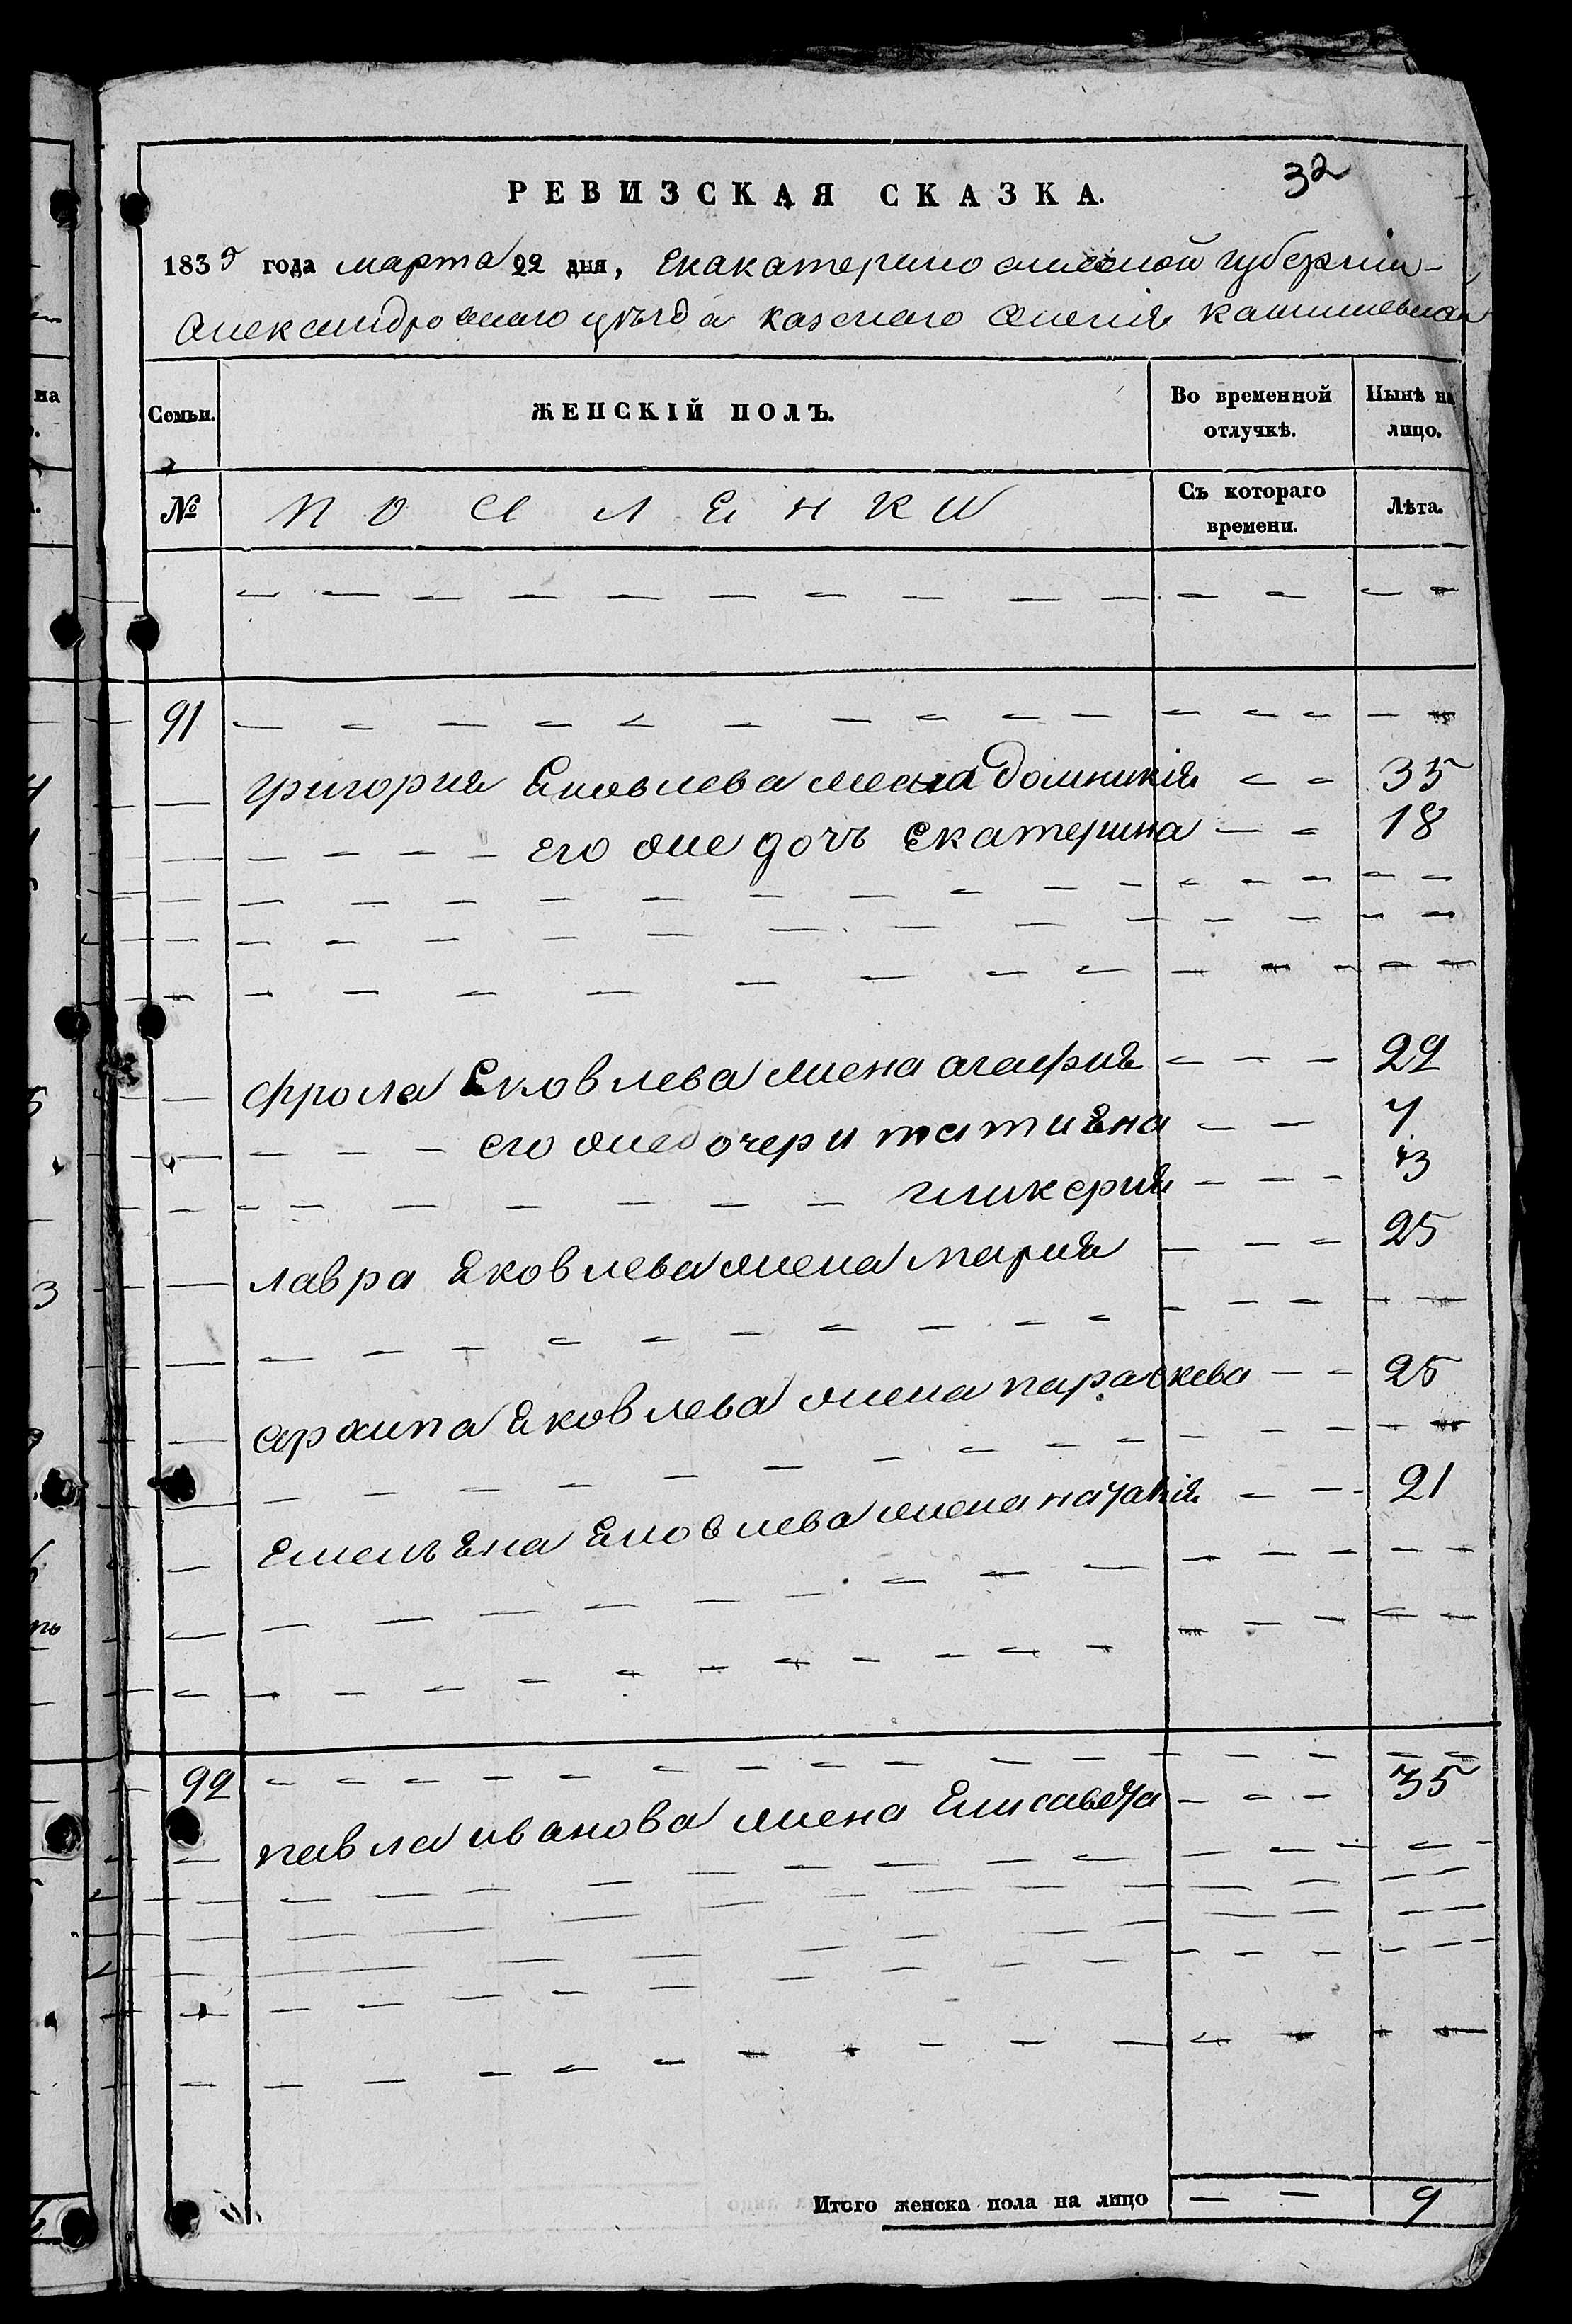 32
РЕВИЗСКАЯ СКАЗКА.
1835 года марта 22 дня, Екакатеринославской губернии
Александровскаго уѣзда казенаго селения
Семьи. ЖЕНСКІЙ ПОЛЪ. Во временной отлучкѣ. Нынѣ на лицо.
№ ПОСЕЛЕНКИ Съ котораго времени. Лѣта.
91
григория Яковлева жена Домникія 35
его же дочь Екатерина 18
фрола Яковлева жена агафия 29
его же дочери татияна 7
гликерия 3
лавра Яковлева жена мария 25
архипа Яковлева жена параскева 25
Емелъяна Яковлева жена наталія 21
92
павла иванова жена Елисавета 35
Итого женска пола на лицо 9